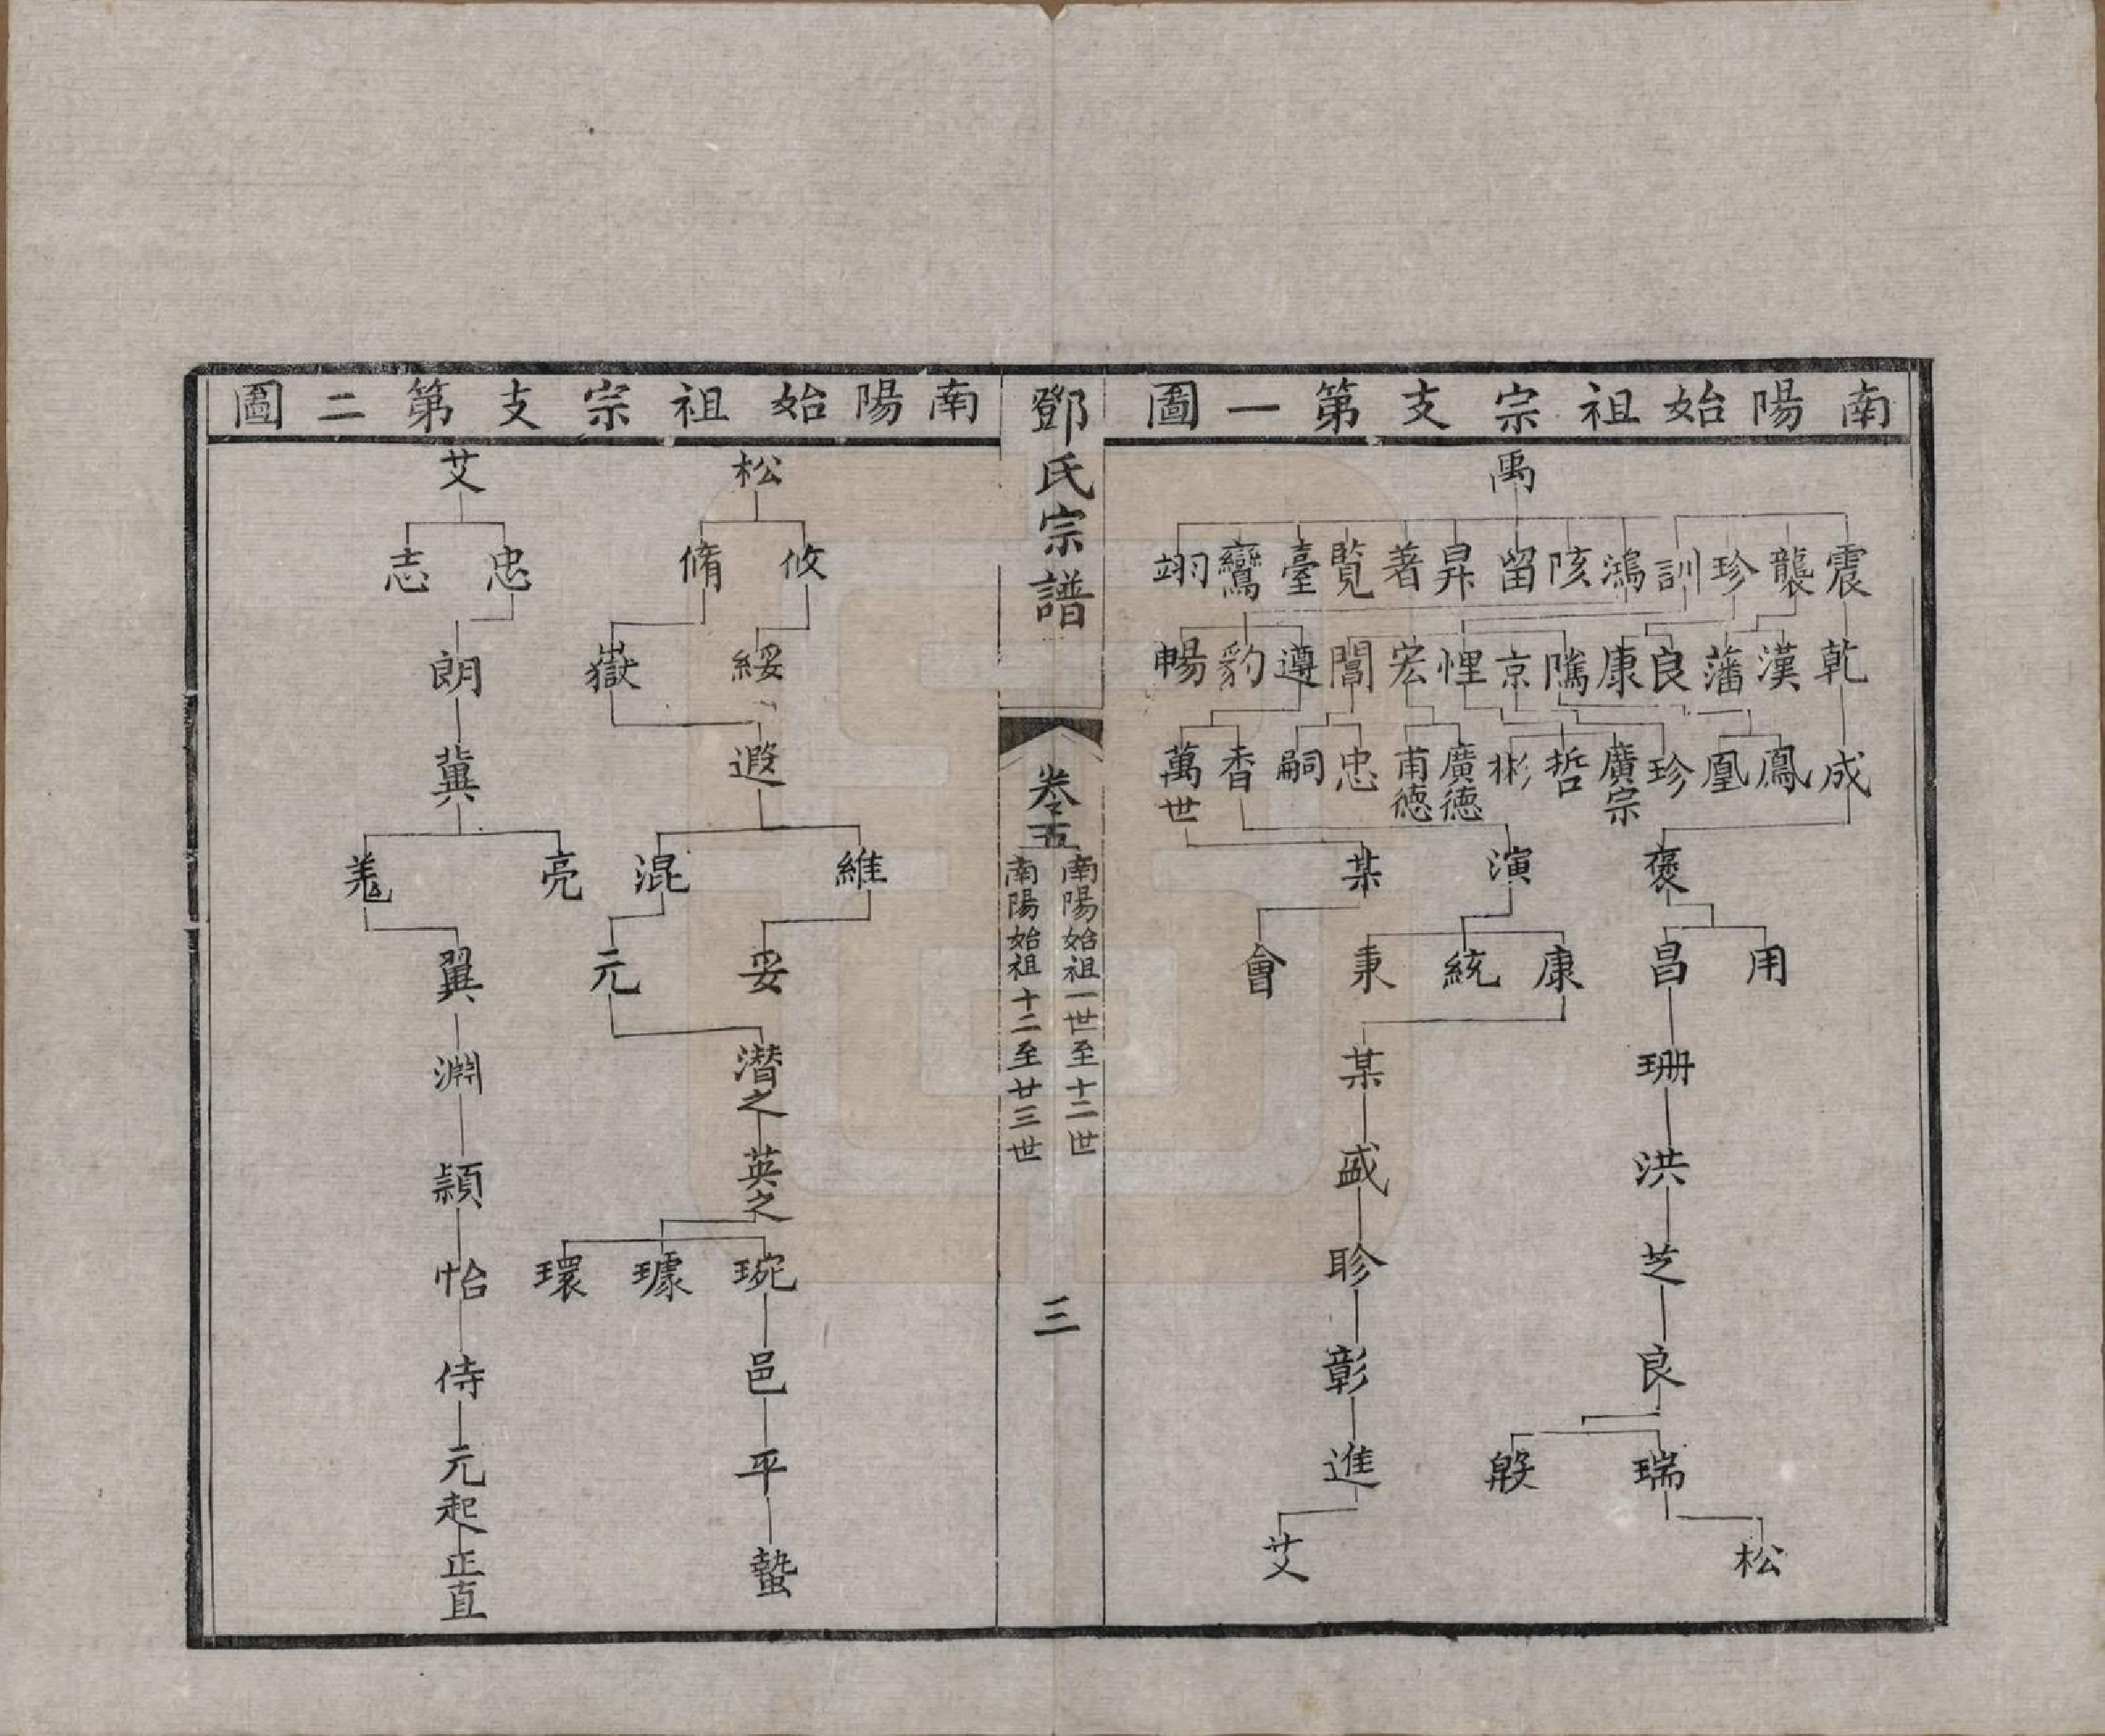 南陽始祖宗支第一圖
禹
震 龔 珍 訓 鴻 陔 留 昇 著 覽 臺 鸞 翊
乾 漢 藩 良 康 隲 京 悝 宏 閶 遵 豹 暢
成 鳳 凰 珍 廣宗 哲 彬 廣德 甫德 忠 嗣 香 萬世
褒 演 某
用 昌 康 統 秉 會
珊 某
洪 盛
芝 聄
良 彰
瑞 殷 進
松 艾
鄧氏宗譜
卷五
南陽始祖一世至十二世
南陽始祖十二至廿三世
三
南陽始祖宗支第二圖
松 艾
攸 脩 忠 志
綏 嶽 朗
遐 冀
維 混 亮 羌
妥 元 翼
潛之 淵
英之 穎
琬 璩 環 怡
邑 侍
平 元起
蟄 正直